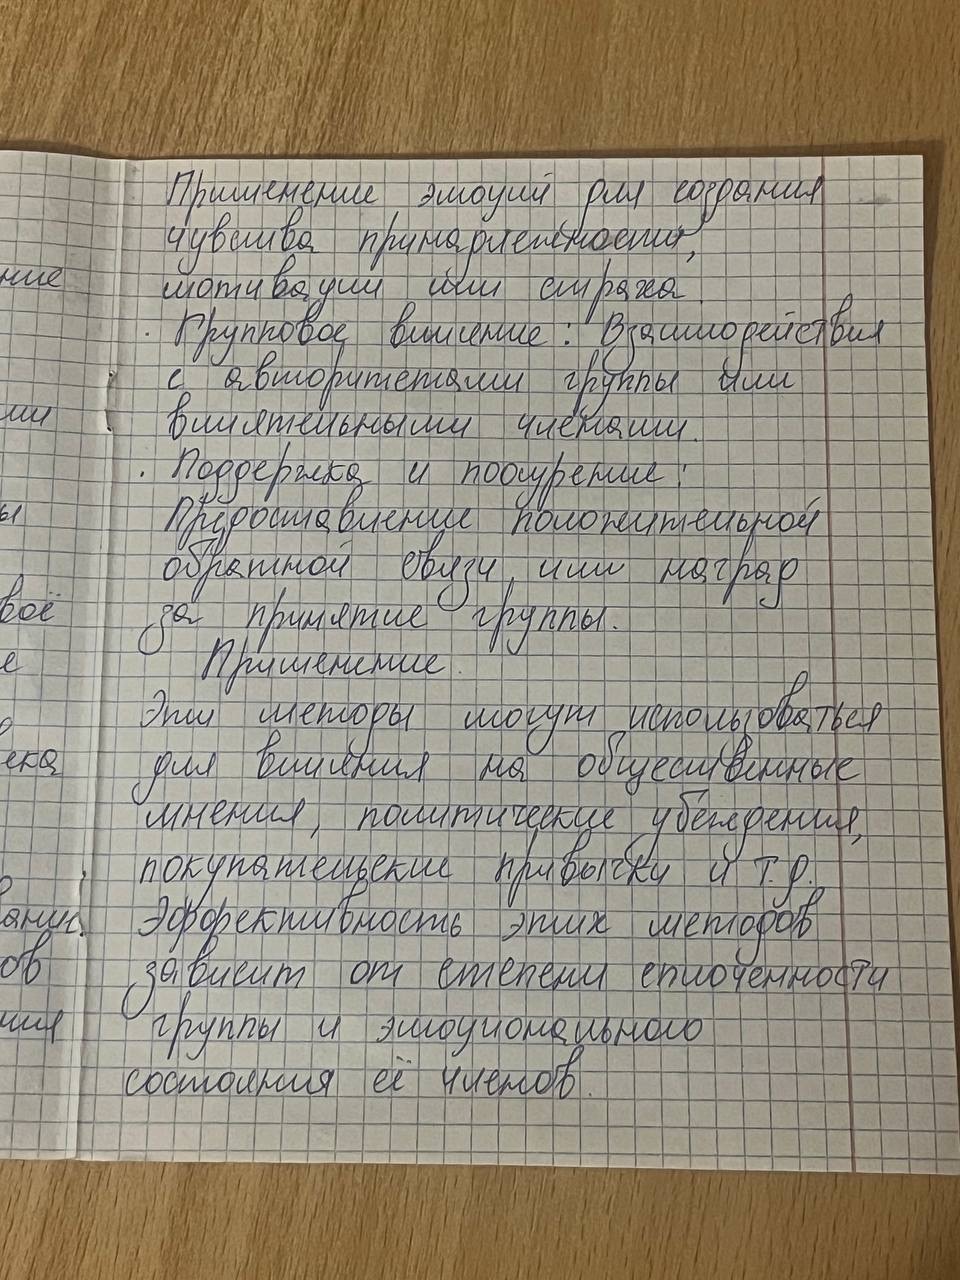 Применение эмоций для создания
чувства принадлежности,
мотивации или страха.
· Групповое влияние: Взаимодействия
с авторитетами группы или
влиятельными членами.
· Поддержка и поощрение:
Предоставление положительной
обратной связи или наград
за принятие группы.
Применение.
Эти методы могут использоваться
для влияния на общественные
мнения, политические убеждения,
покупательские привычки и т.д.
Эффективность этих методов
зависит от степени сплочённости
группы и эмоционального
состояния её членов.
ние
ми
ы
воё
е
о
ека
ов
ния